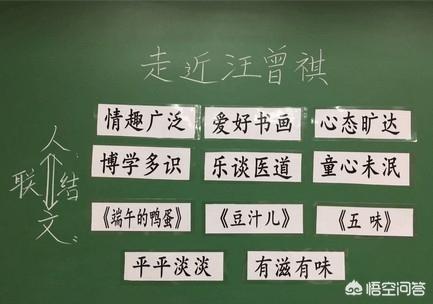 走近汪曾祺
情趣广泛 爱好书画 心态旷达
人
博学多识 乐谈医道 童心未泯
联 结
文
《端午的鸭蛋》 《豆汁儿》 《五 味》
平平淡淡 有滋有味
悟空问答